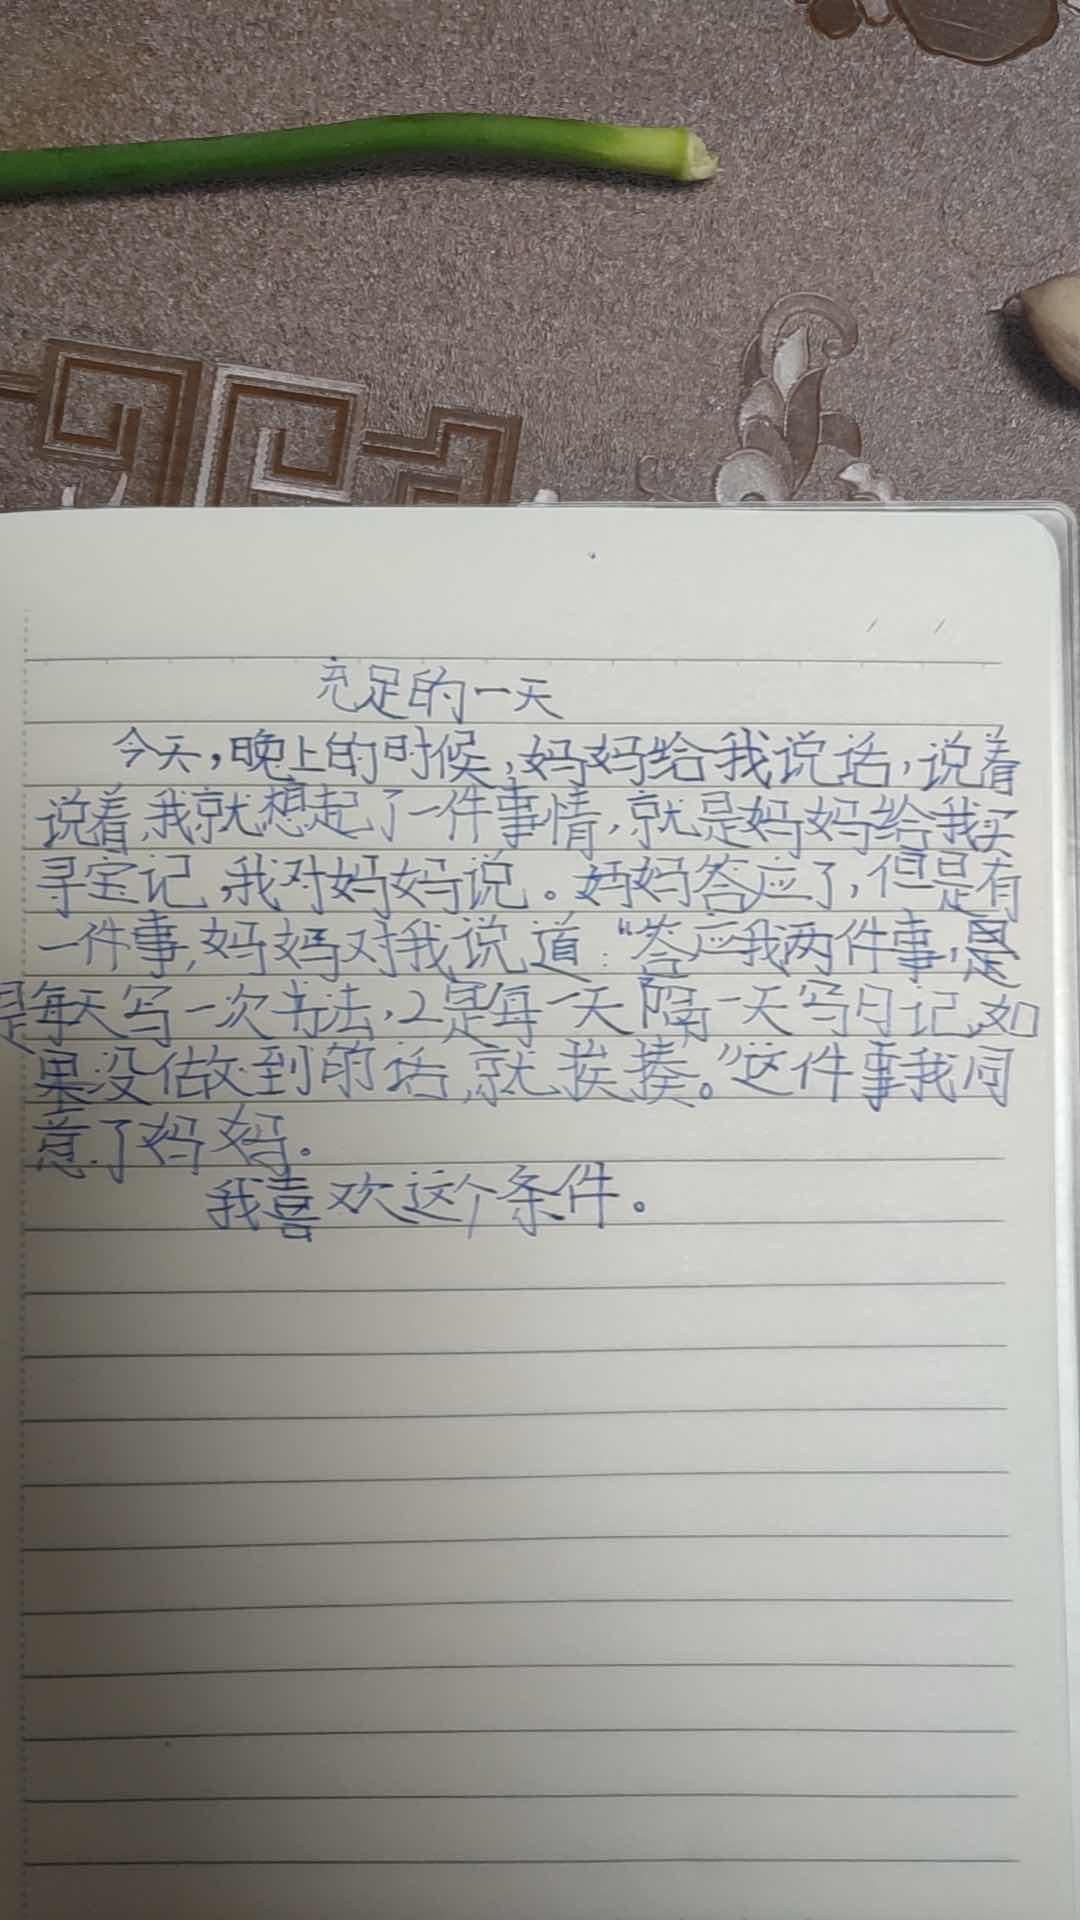 充足的一天
今天,晚上的时候,妈妈给我说话,说着
说着,我就想起了一件事情,就是妈妈给我买
寻宝记,我对妈妈说。妈妈答应了,但是有
一件事,妈妈对我说道:“答应我两件事,是
是每天写一次书法,2是每一天隔一天写日记,如
果没做到的话,就挨揍。”这件事我同
意了妈妈。
我喜欢这个条件。